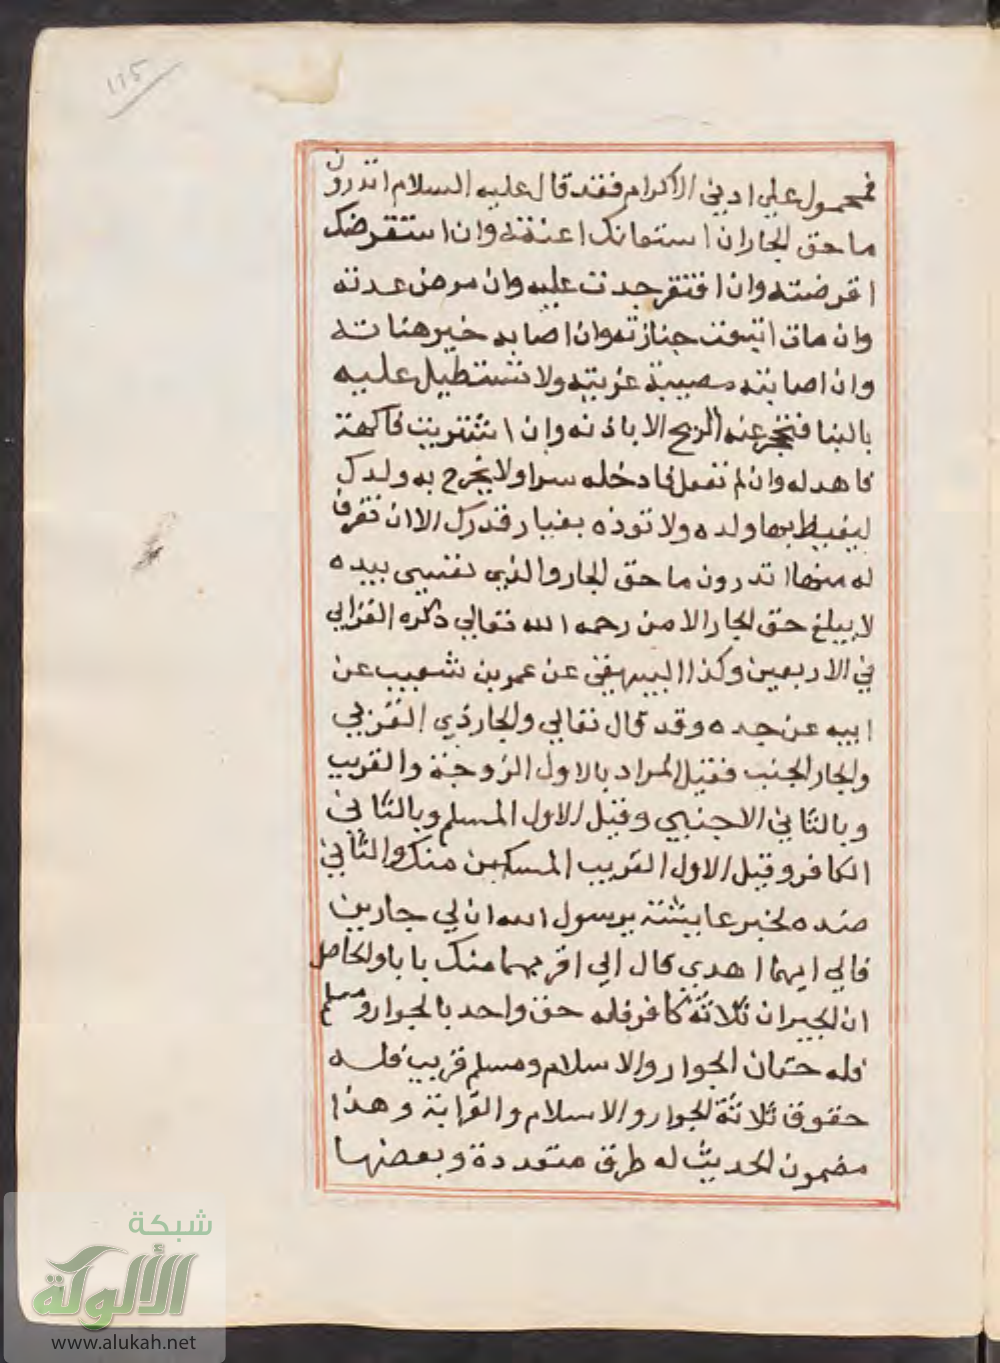 ١١٥
فمحمول علي ادني الاكرام فقد قال عليه السلام اتدرون
ما حق الجار ان استعانك اعنته وان استقرضك
اقرضته وان افتقر جدت عليه وان مرض عدته
وان مات اتبعت جنازته وان اصابه خير هناته
وان اصابته مصيبة عزيته ولا تستطيل عليه
بالبنا فتحجر عنه الريح الا باذنه وان اشتريت فاكهة
فاهد له وان لم تفعل فادخله سرا ولا يخرج به ولدك
ليغيظ بها ولده ولا توذه بغبار قدرك الا ان تغرف
له منها اتدرون ما حق الجار والذي نفسي بيده
لا يبلغ حق الجار الا من رحمه الله تعالي ذكره الغزالي
في الاربعين وكذا البيهقي عن عمر بن شعيب عن
ابيه عن جده وقد قال تعالي والجار ذي القربي
والجار الجنب فقيل المراد بالاول الزوجة والقريب
وبالثاني الاجنبي وقيل الاول المسلم وبالثاني
الكافر وقيل الاول القريب المسكين منك والثاني
ضده لخبر عايشة يرسول الله ان لي جارين
فالي ايهما اهدي قال الي اقربهما منك بابا والحاصل
ان الجيران ثلاثة كافر فله حق واحد بالجوار ومسلم
فله حقان الجوار والاسلام ومسلم قريب فله
حقوق ثلاثة الجوار والاسلام والقرابة وهذا
مضمون الحديث له طرق متعددة وبعضها
شبكة
الألوكة
www.alukah.net